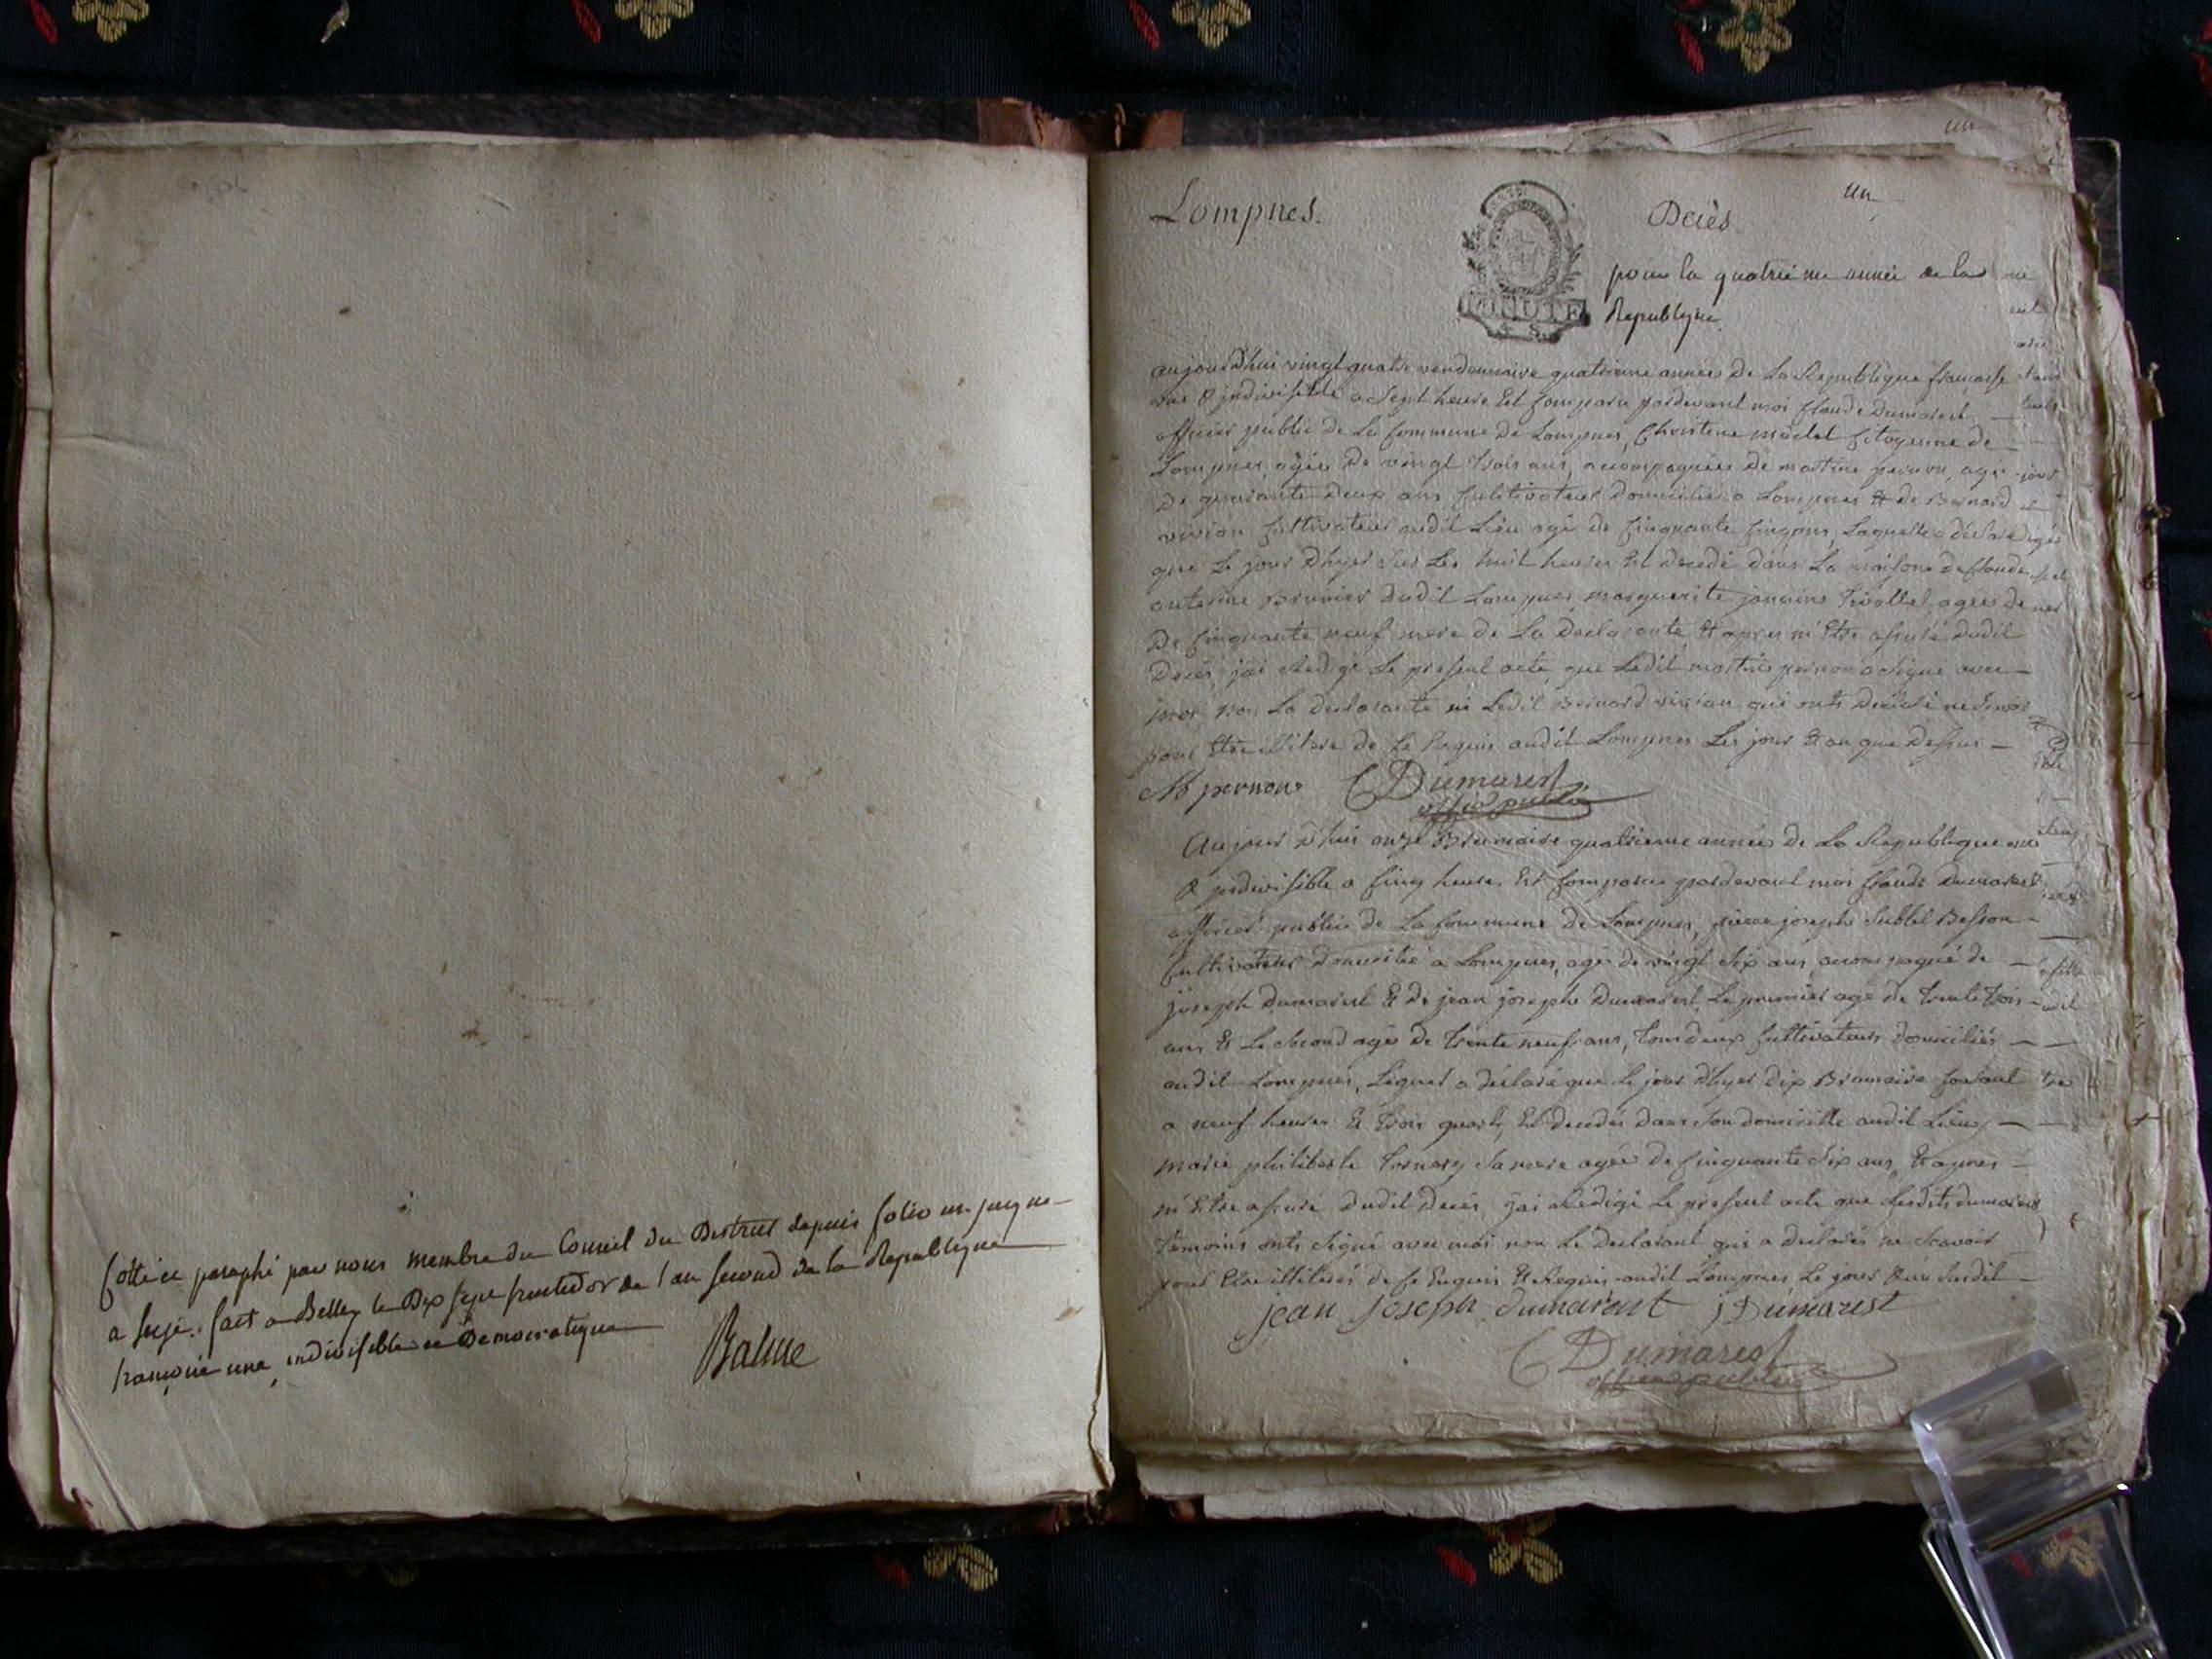 Cotté et paraphé par nous membre du Conseil du District depuis folio un jusque
a seize. fait a Belley le Dix sept fructidor de l'an second de la Republique
françoise une, indivisible et Democratique
Balme
un
Lompnes.
un
Decès
pour la quatrieme année de la
Republique.
MINUTE
4 S.
aujourdhui vingt quatre vendemiaire quatrieme année de La Republique francoise
une & jndivisible a Sept heure Est Comparu pardevant moi Claude Dumarest
officier public de La Commune de Lompnes, Christine Citoyenne de
Lompnes, agée De vingt trois ans, accompagnée De martin pernon, agé
De quarante Deux ans Cultivateur Domicilié a Lompnes & de Bernard
vivian Cultivateur audit Lieu agé de Cinquante Cinq ans, Laquelle a déclaré
que Le jour Dhyer Sur Les huit heures Est Decedé dans La maison de Claude
anterme Brunier dudit Lompnes marguerite agée de
De Cinquante neuf mere de La Declarante, & apres m'Etre assuré dudit
Deces, jai Redigé Le present acte, que Ledit martin pernon a Signé avec
moi non La declarante ni Ledit Bernard vivian qui ont Declaré ne Savoir
pour Etre illiteré de Ce Requis audit Lompnes Les jour & an que Dessus
M pernon C Dumarest
officier public
Aujourdhui onze Brumaire quatrieme année De La Republique une
& jndivisible a Cinq heure, Est Comparu pardevant moi Claude Dumarest
officier public de La Commune de Lompnes, pierre joseph Sublet Besson
Cultivateur Domicilié a Lompnes, agé de vingt Six ans, accompagné de
joseph Dumarest & De jean joseph Dumarest, Le premier agé de trente trois
ans & Le Second agé De trente neuf ans, tous Deux Cultivateurs domiciliés
audit Lompnes, Lequel a déclaré que Le jour d'hyer Dix Brumaire Courant
a neuf heures & trois quarts, Est decedée dans Son domicille audit Lieu
marie philiberte tornery Sa mere agée de Cinquante Six ans, & apres
m'Etre assuré dudit Deces, jai Redigé Le present acte que Lesdits dumarest
temoins onts Signé avec moi non Le Declarant qui a declaré ne Scavoir
pour Etre illiteré de Ce Enquis & Requis audit Lompnes Le jour & an Susdit
jean joseph dumarest j Dumarest
C Dumarest
officier public